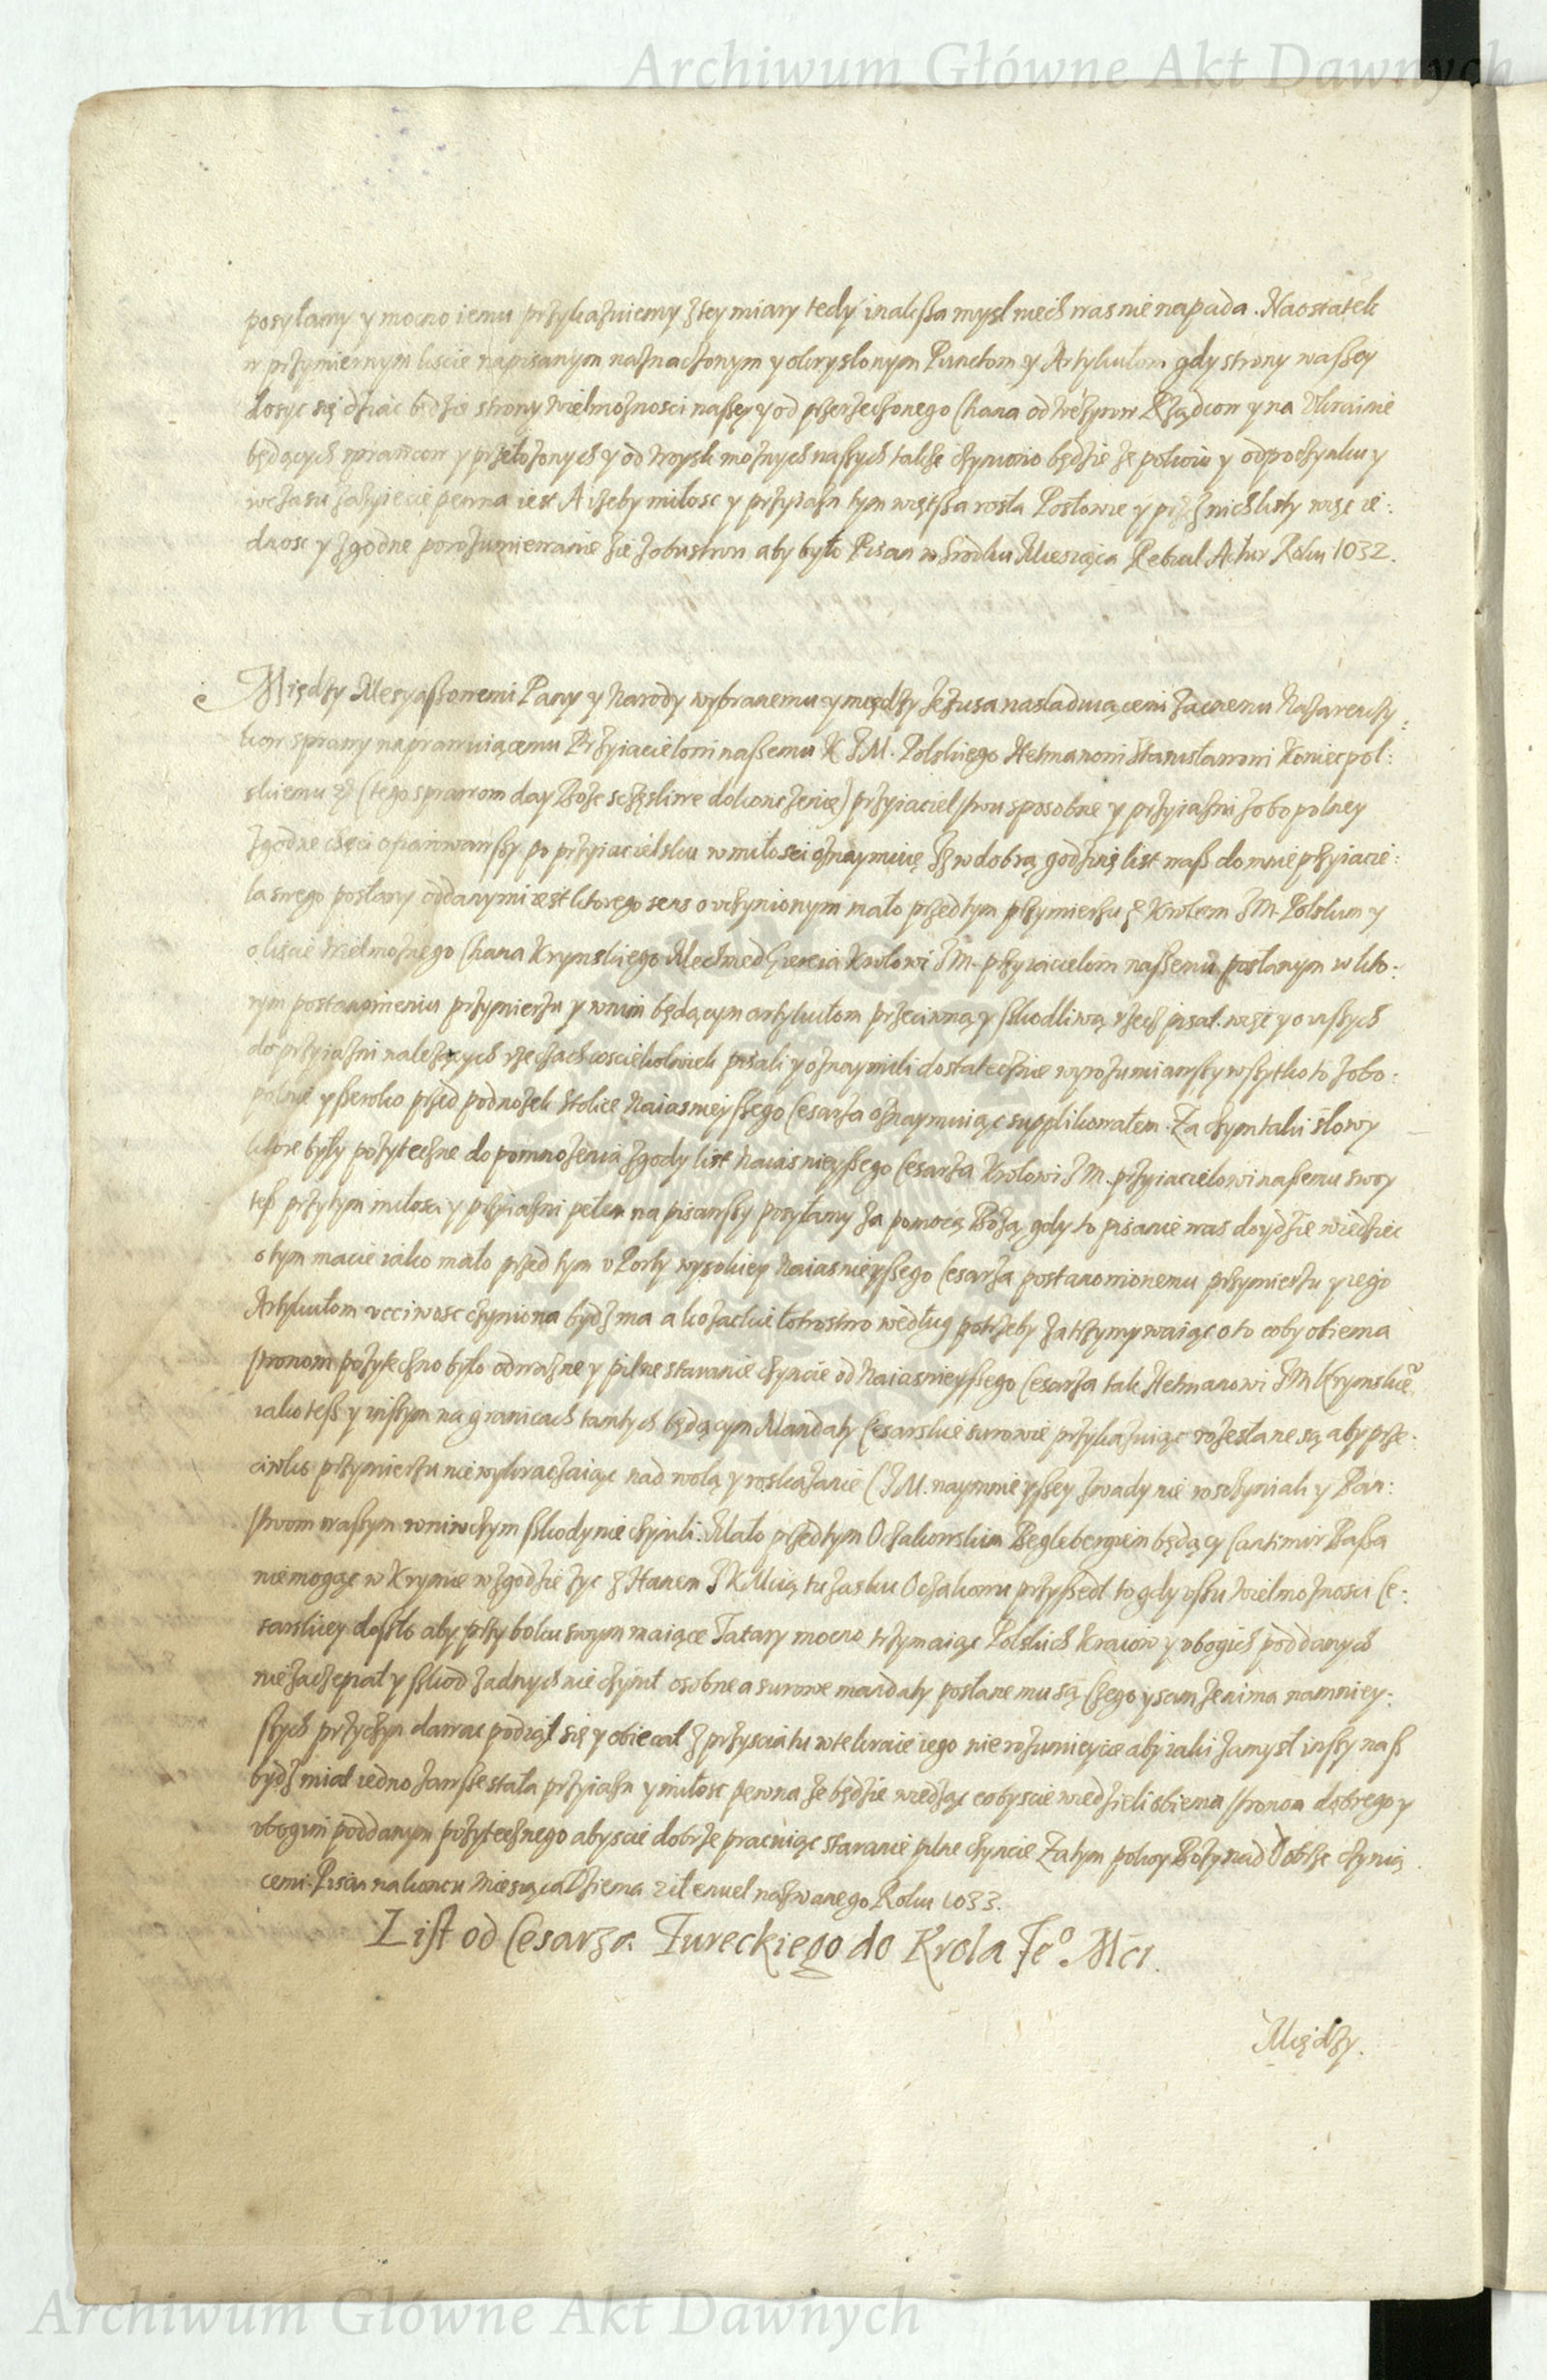 Archiwum Główne Akt Dawnych
posyłamy y mocno iemu przykazuiemy z tey miary tedy inaksza mysl niech was nie napada. Naostatek
w przymiernym liscie napisanym naznaczonym y okryslonym Punctom y Artykułom gdy strony waszey
dosyc się dziac będzie strony wielmoznosci naszey y od przerzeczonego Chana od Wezyrow Rządcow y na Ukrainie
będących sprawcow y przełozonych y od Woysk moznych naszych takze czyniono będzie ze pokoiu y odpoczynku y
wczasu zazyiecie pewna iest A izeby miłosc y przyiazn tym większa rosła Posłowie y przez nich listy więc ie:
dnosc y zgodne porozumiewanie się z obustron aby było Pisan w srodku Miesiąca Rebiul Achir Roku 1032.
Między Mesyaszowemi Pany y Narody wybranemu y między Jezusa nasladuiącemi zacnemu Nazarenczy:
kow sprawy naprawuiącemu Przyiacielowi naszemu K JM. Polskiego Hetmanowi Stanisławowi Koniecpol:
skiemu (tego sprawom day Boze sczęsliwe dokonczenie) przyiacielstwu sposobne y przyiazni zobopolney
zgodne chęci ofiarowawszy po przyiacielsku w miłosci oznaymuię Iz w dobrą godzinę list wasz do mnie przyiacie:
la swego posłany oddany mi iest ktorego sens o uczynionym mało przed tym przymierzu z Krolem JM. Polskim y
o liscie Wielmoznego Chana Krymskiego Mechmed Giereia Krolowi JM. przyiacielowi naszemu posłanym w kto:
rym postanowieniu przymierzu y w nim będącym artykułom przeciwną y szkodliwą rzecz pisał. więc y o wszych
do przyiazni nalezących rzeczach coscie kolwiek pisali y oznaymili dostatecznie wyrozumiawszy wszytko to zobo:
polnie y szeroko przed podnozek Stolice Naiasnieyszego Cesarza oznaymuiąc supplikowałem. Za czym taki słowy
ktore były pozyteczne do pomnozenia zgody list Naiasnieyszego Cesarza Krolowi JM. przyiacielowi naszemu swoy
tesz przy tym miłosci y przyiazni pełen napisawszy posyłamy za pomocą Bozą gdy to pisanie was doydzie wiedziec
o tym macie iako mało przed tym u Porty wysokiey Naiasnieyszego Cesarza postanowionemu przymierzu y iego
Artykułom uccziwosc czyniona bydz ma a kozackie łotrostwo według potrzeby zatrzymywaiąc o to coby obiema
stronom pozyteczno było odwazne y pilne staranie czyncie od Naiasnieyszego Cesarza tak Hetmanowi JM Krymskie
iako tesz y inszym na granicach tamtych będącym Mandaty Cesarskie surowie przykazuiąc rozesłane są aby prze:
ciwko przymierzu nie wykraczaiąc nad wolą y roskazanie CJM. naymnieyszey zwady nie wsczyniali y Pan:
stwom waszym w niwczym szkody nie czynili. Mało przed tym Oczakowskim Beglebergiem będący Cantimir Basza
nie mogąc w Krymie w zgodzie zyc z Hanem JKMcią tu zasku Oczakowu przyszedł to gdy uszu wielmoznosci Ce:
sarskiey doszło aby przy boku swym maiące Tatary mocno trzymaiąc Polskich kraiow y ubogich poddanych
nie zaczepiał y szkod zadnych nie czynił osobne a surowe mandaty posłane mu są Czego y sam ze nima namniey:
szych przyczyn dawac podiął się y obiecał z przyscia tu w te kraie iego nie rozumieycie aby iaki zamysł inszy nasz
bydz miał iedno zawsze stała przyiazn y miłosc pewna ze będzie wiedząc cobyscie wiedzieli obiema stronom dobrego y
ubogim poddanym pozytecznego abyscie dobrze pracuiąc staranie pilne czyncie Zatym pokoy Bozy nad Dobrze czynią
cemi. Pisan na koncu Miesiąca Dziema zil ewel nazwanego Roku 1033.
List od Cesarza Tureckiego do Krola Jeo Mci.
Między.
Archiwum Główne Akt Dawnych